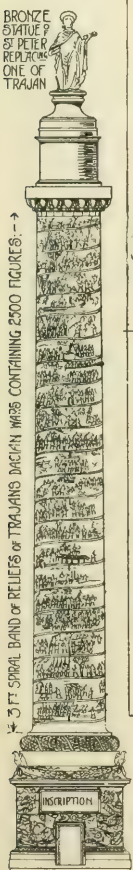 BRONZE
STATUE OF
ST PETER
REPLACING
ONE OF
TRAJAN
3 FT SPIRAL BAND OF RELIEFS OF TRAJANS DACIAN WARS CONTAINING 2500 FIGURES:-
INSCRIPTION